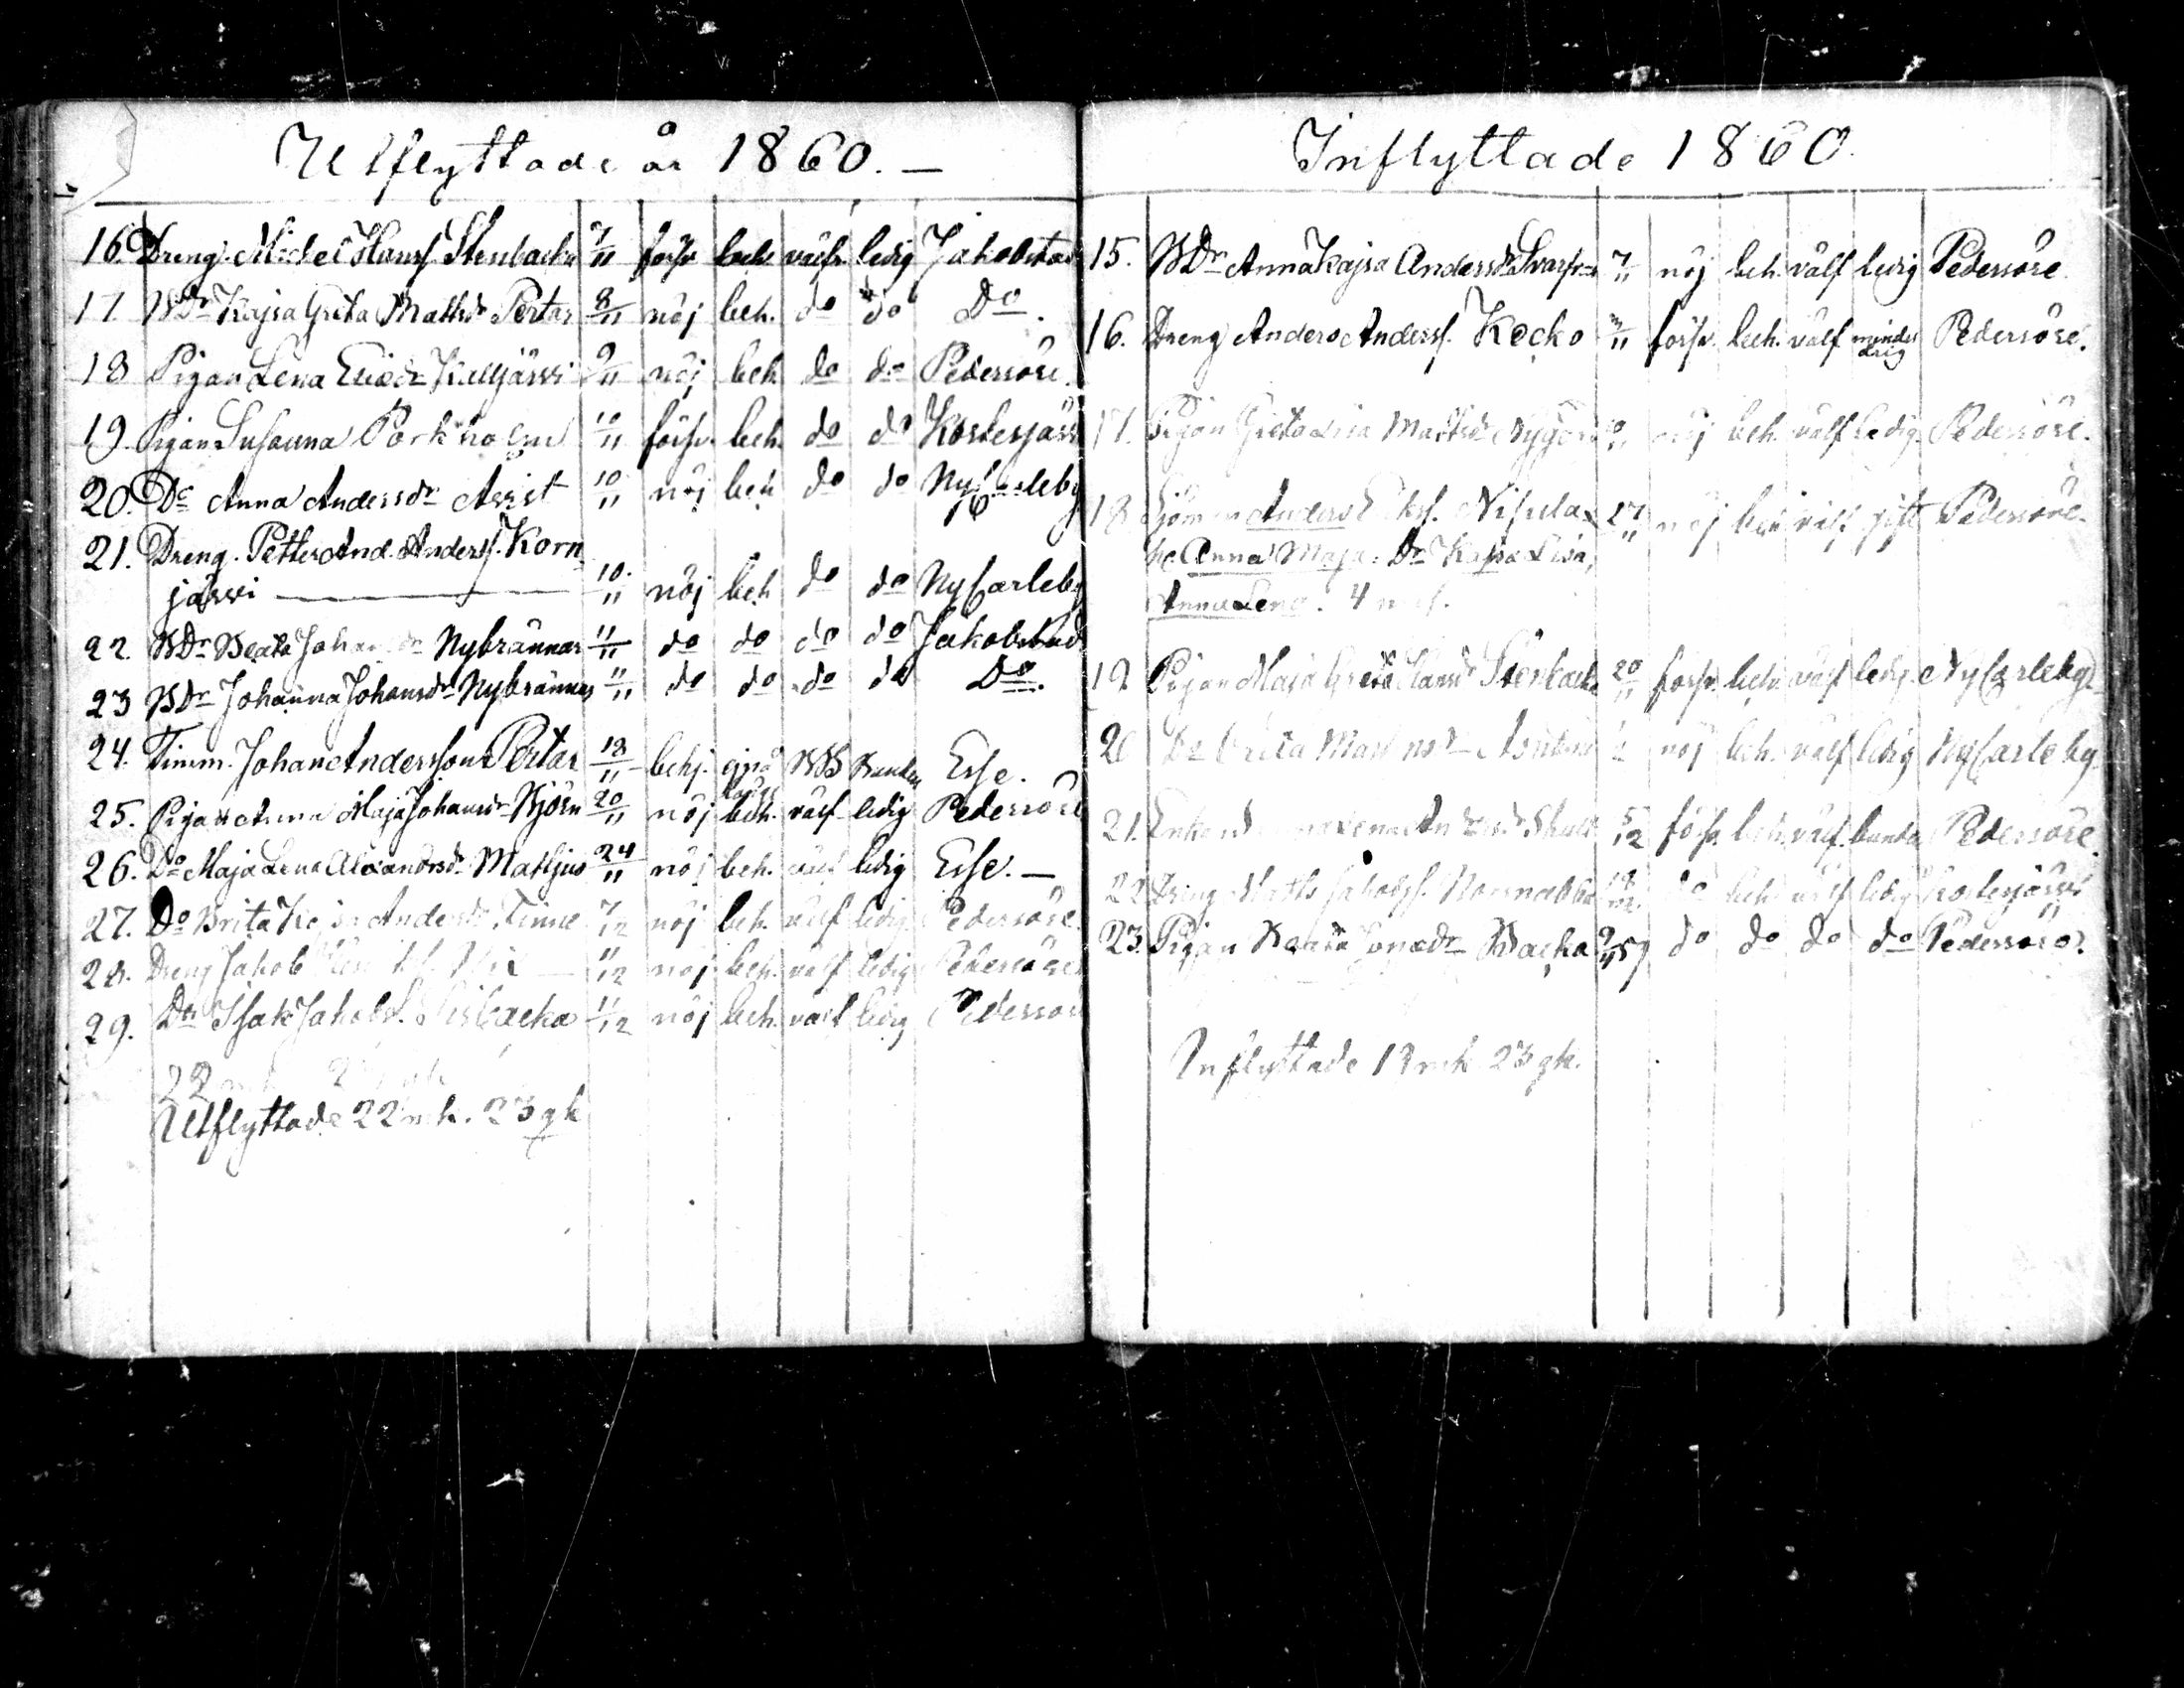 Utflyttade år 1860. —
16. Dreng. Michel Hanss. Stenbacka 7/11 försv. beh. välf. ledig Jakobstad
17. BDr Kajsa Greta Mattsdr Pertar 8/11 nöj beh. do do Do.
18 Pigan Lena Ericsdr Kulljärvi 9/11 nöj beh. do do Pedersöre.
19. Pigan Susanna Porkholm 10/11 försv. beh. do do Kortesjärvi
20. Do Anna Andersdr Aerst 10/11 nöj beh do do NyCarleby
21. Dreng. Petter And. Anderss. Korn
järvi — 10/11 nöj beh do do NyCarleby
22. BDr Beata Johansdr Nybrännar 11/11 do do do do Jakobstad
23 BDr Johanna Johansdr Nybrännar 11/11 do do do do Do.
24. Timm. Johan Andersson Pertar 18/11 behj. BB Esse.
25. Pigan Anna Maja Johansdr Björn 20/11 nöj beh. välf ledig Pedersöre
26. Do Maja Lena Alexandersdr Matsjus 24/11 nöj beh. välf ledig Esse. —
27. Do Brita Kajsa Andersdr Finne 7/12 nöj beh. välf ledig Pedersöre
28. Dreng Jakob 11/12 nöj beh. välf ledig Pedersöre
29. Do Isak Jakobss. 11/12 nöj beh. välf ledig Pedersöre
22
Utflyttade 22 mk. 23 qk
Inflyttade 1860.
15. BDr Anna Kajsa Andersdr 7/11 nöj beh. välf ledig Pedersöre.
16. Dreng Anders Anderss. Kecko försv. beh. välf minder
årig Pedersöre.
17. Pigan Greta Lisa Mattsdr Nygård nöj beh. välf ledig Pedersöre.
18 Anders Nisula 27/11 nöj beh välf gift Pedersöre.
h. Anna Maja. Dr Kajsa Lisa,
Anna Lena. 4
19 Pigan Maja Greta Hansdr Stenbacka 20/11 försv. beh. välf ledig. NyCarleby.
20 Do Brita nöj beh. välf ledig NyCarleby.
21. Enkan 5/12 försv. beh. välf. Pedersöre.
22 Dreng Matts Jakobss. do beh välf ledig Kortesjärvi
23. Pigan Jonædr Backa do do do do Pedersöre.
Inflyttade 13 mk 23 qk.